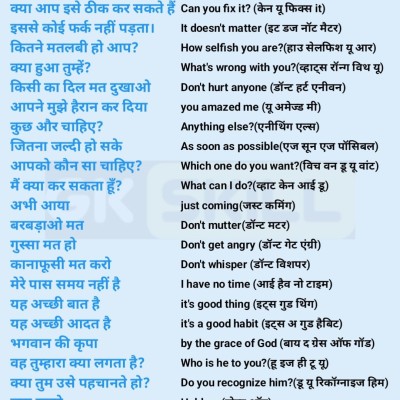 क्या आप इसे ठीक कर सकते हैं Can you fix it? (केन यू फिक्स इट)
इससे कोई फर्क नहीं पड़ता। It doesn't matter (इट डज नॉट मैटर)
कितने मतलबी हो आप? How selfish you are?(हाउ सेलफिश यू आर)
क्या हुआ तुम्हें? What's wrong with you?(व्हाट्स रॉन्ग विथ यू)
किसी का दिल मत दुखाओ Don't hurt anyone (डॉन्ट हर्ट एनीवन)
आपने मुझे हैरान कर दिया you amazed me (यू अमेज्ड मी)
कुछ और चाहिए? Anything else?(एनीथिंग एल्स)
जितना जल्दी हो सके As soon as possible(एज सून एज पॉसिबल)
आपको कौन सा चाहिए? Which one do you want?(विच वन डू यू वांट)
मैं क्या कर सकता हूँ? What can I do?(व्हाट केन आई डू)
अभी आया just coming(जस्ट कमिंग)
बरबड़ाओ मत Don't mutter(डॉन्ट मटर)
गुस्सा मत हो Don't get angry (डॉन्ट गेट एंग्री)
कानाफूसी मत करो Don't whisper (डॉन्ट विशपर)
मेरे पास समय नहीं है I have no time (आई हैव नो टाइम)
यह अच्छी बात है it's good thing (इट्स गुड थिंग)
यह अच्छी आदत है it's a good habit (इट्स अ गुड हैबिट)
भगवान की कृपा by the grace of God (बाय द ग्रेस ऑफ गॉड)
वह तुम्हारा क्या लगता है? Who is he to you?(हू इज ही टू यू)
क्या तुम उसे पहचानते हो? Do you recognize him?(डू यू रिकॉग्नाइज हिम)